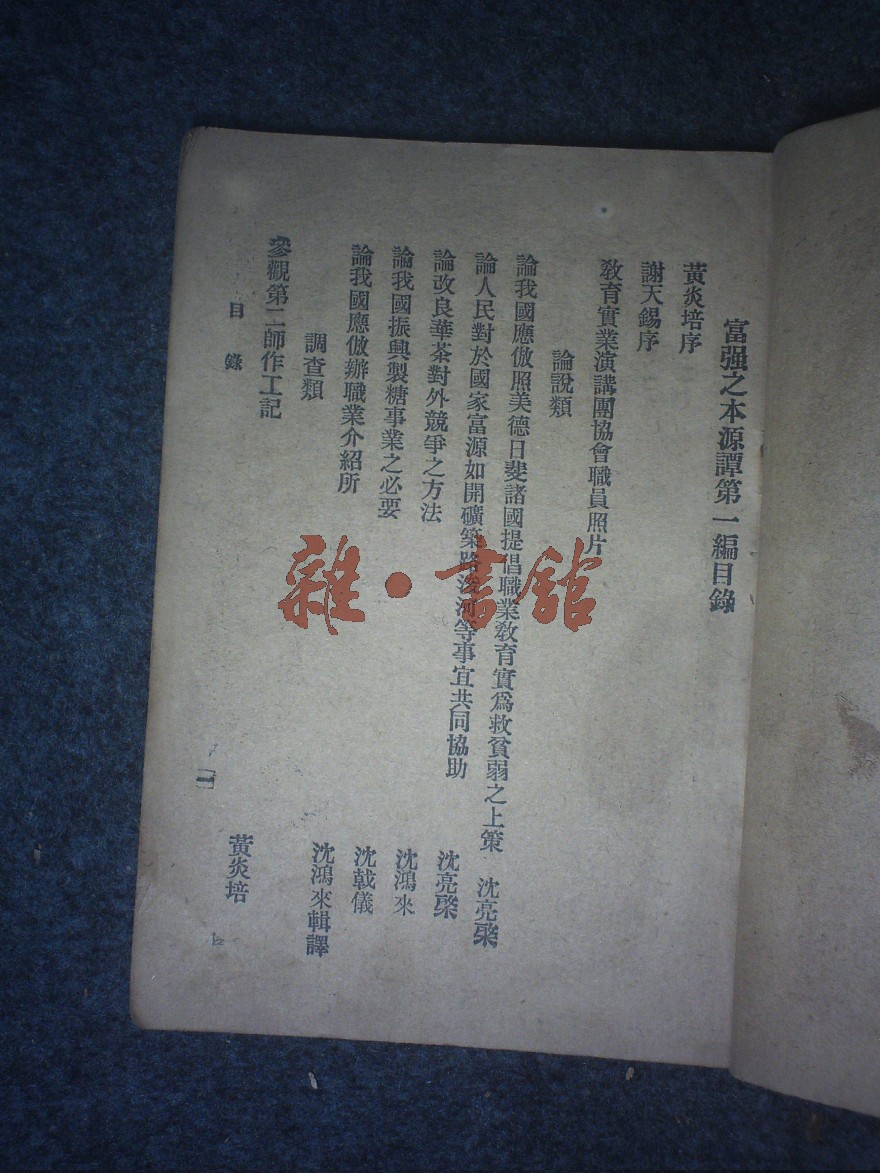 富强之本源譚第一編目錄
黃炎培序
謝天錫序
敎育實業演講團協會職員照片
論說類
論我國應倣照美德日斐諸國提倡職業敎育實爲救貧弱之上策 沈亮棨
論人民對於國家富源如開礦築路浚河等事宜共同協助 沈亮棨
論改良華茶對外競爭之方法 沈鴻來
論我國振興製糖事業之必要 沈戟儀
論我國應倣辦職業介紹所 沈鴻來輯譯
調查類
參觀第二師作工記 黃炎培
目錄
一
雜·書館